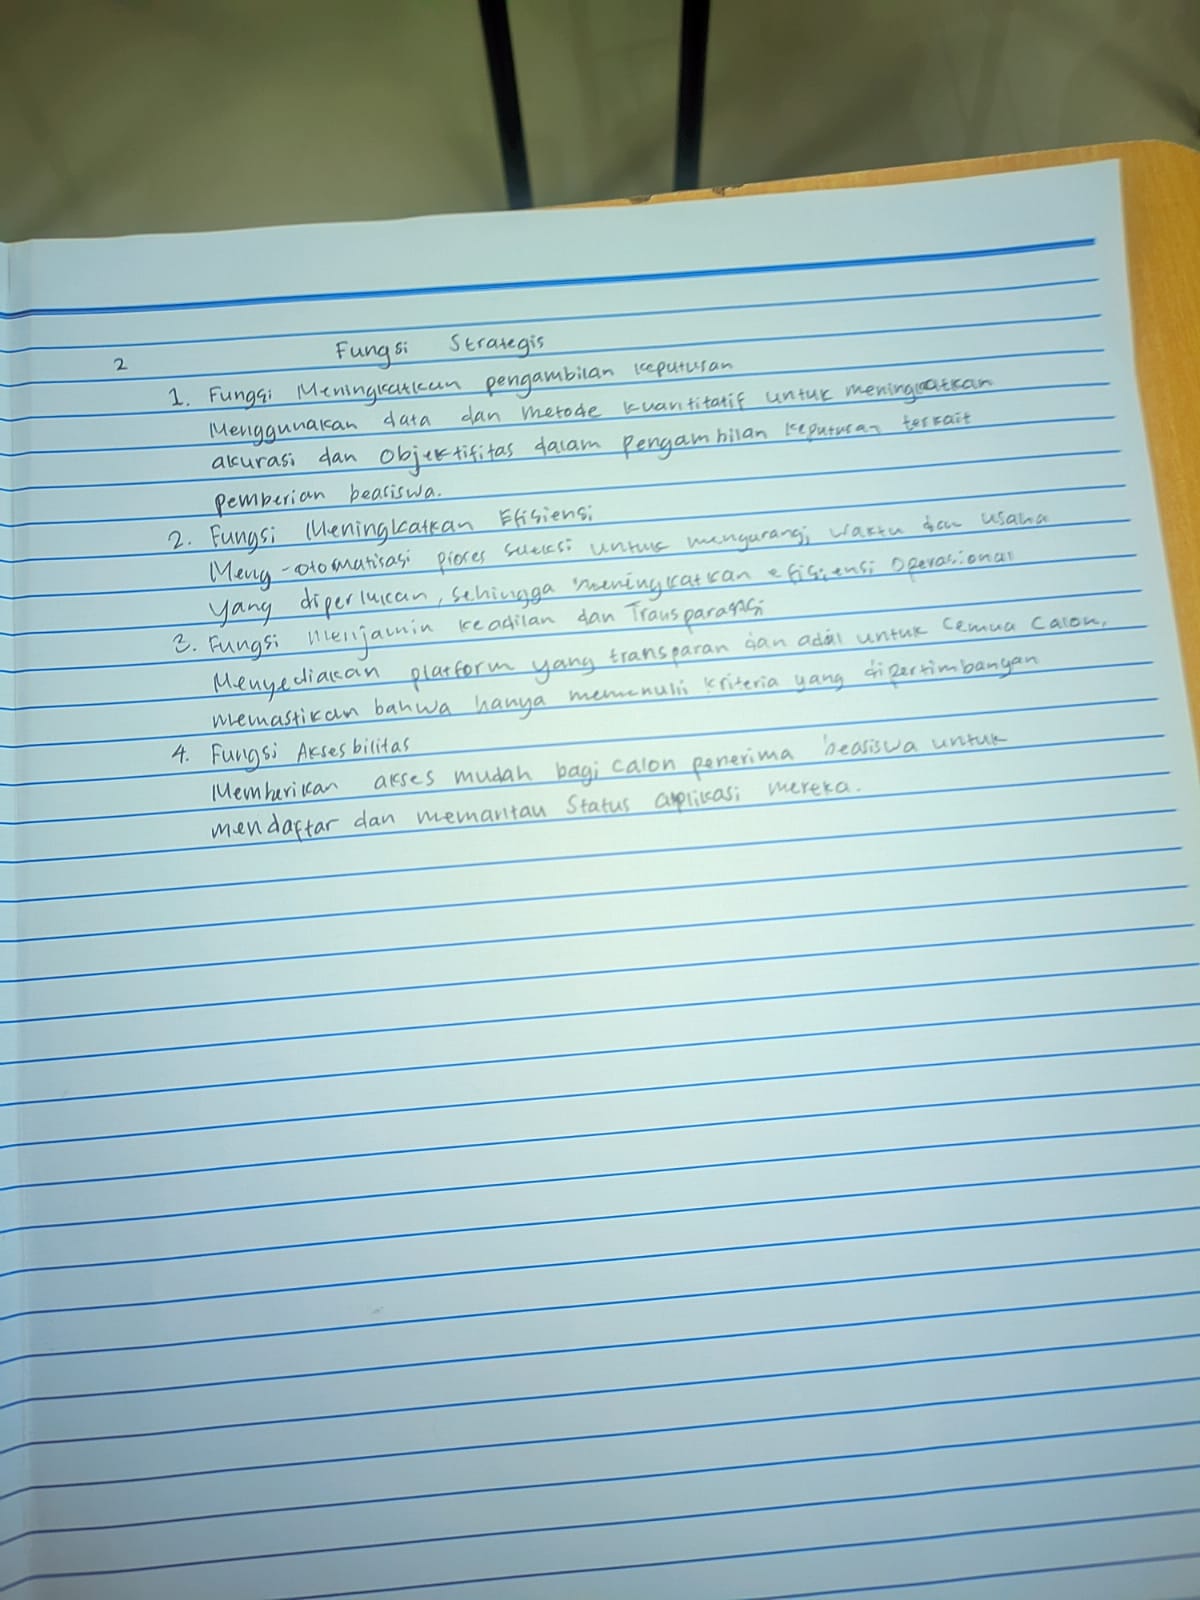 2 Fungsi Strategis
1. Fungsi Meningkatkan pengambilan keputusan
Menggunakan data dan metode kuantitatif untuk meningkatkan
akurasi dan objektifitas dalam pengambilan keputusan terkait
pemberian beasiswa.
2. Fungsi Meningkatkan Efisiensi
Meng-otomatisasi proses seleksi untuk mengurangi waktu dan usaha
yang diperlukan, sehingga meningkatkan efisiensi operasional
3. Fungsi menjamin keadilan dan Transparansi
Menyediakan platform yang transparan dan adil untuk Cemua Calon,
memastikan bahwa hanya memenuhi kriteria yang dipertimbangan
4. Fungsi Aksesbilitas
Memberikan akses mudah bagi calon penerima beasiswa untuk
mendaftar dan memantau Status aplikasi mereka.